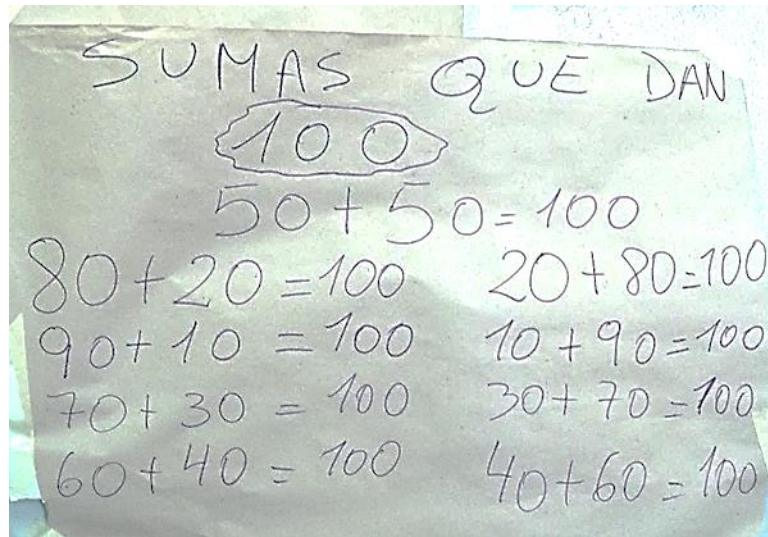 SUMAS QUE DAN
100
50+50=100
80+20=100 20+80=100
90+10=100 10+90=100
70+30=100 30+70=100
60+40=100 40+60=100